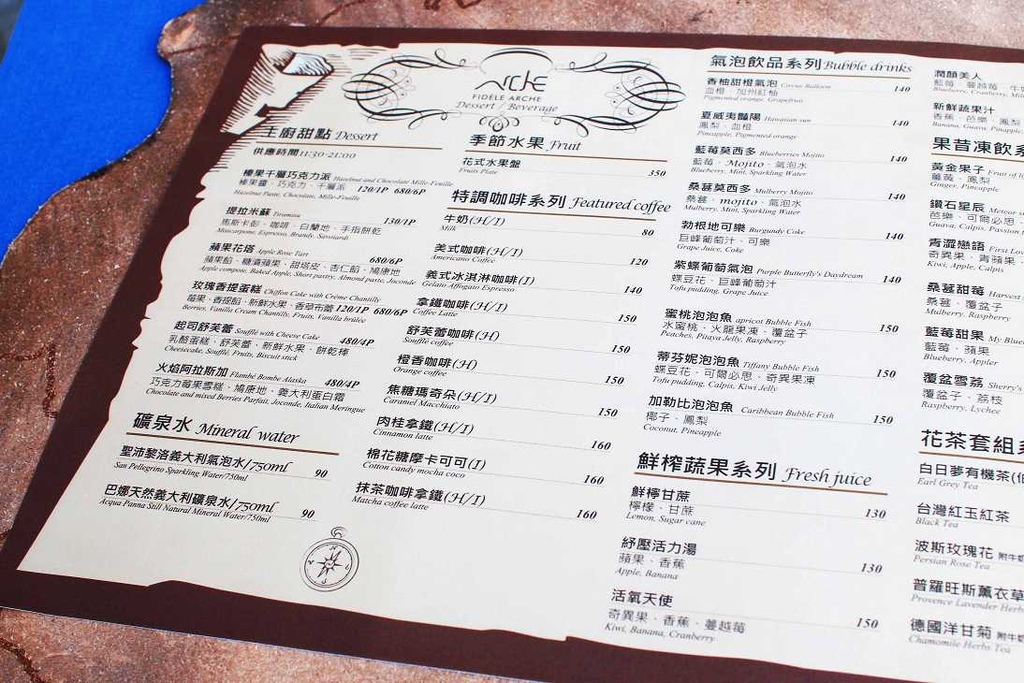 FIDÈLE ARCHE
Dessert / Beverage
主廚甜點 Dessert
供應時間11:30-21:00
榛果千層巧克力派 Hazelnut and Chocolate Mille-Feuille
榛果醬、巧克力、千層派 120/1P 680/6P
Hazelnut Paste, Chocolate, Mille-Feuille
提拉米蘇 Tiramisu
馬斯卡彭、咖啡、白蘭地、手指餅乾 130/1P
Mascarpone, Espresso, Brandy, Savoiardi
蘋果花塔 Apple Rose Tart
蘋果餡、糖漬蘋果、甜塔皮、杏仁餡、鳩康地 680/6P
Apple compote, Baked Apple, Short pastry, Almond paste, Joconde
玫瑰香提蛋糕 Chiffon Cake with Crème Chantilly
莓果、香提餡、新鮮水果、香草布蕾 120/1P 680/6P
Berries, Vanilla Cream Chantilly, Fruits, Vanilla brûlée
起司舒芙蕾 Soufflé with Cheese Cake 480/4P
乳酪蛋糕、舒芙蕾、新鮮水果、餅乾棒
Cheesecake, Soufflé, Fruits, Biscuit stick
火焰阿拉斯加 Flambé Bombe Alaska 480/4P
巧克力莓果雪糕、鳩康地、義大利蛋白霜
Chocolate and mixed Berries Parfait, Joconde, Italian Meringue
礦泉水 Mineral water
聖沛黎洛義大利氣泡水/750ml 90
San Pellegrino Sparkling Water/750ml
巴娜天然義大利礦泉水/750ml 90
Acqua Panna Still Natural Mineral Water/750ml
季節水果 Fruit
花式水果盤 350
Fruits Plate
特調咖啡系列 Featured coffee
牛奶(H/I) 80
Milk
美式咖啡(H/I) 120
Americano Coffee
義式冰淇淋咖啡(I) 140
Gelato Affogato Espresso
拿鐵咖啡(H/I) 150
Coffee Latte
舒芙蕾咖啡(H) 150
Soufflé coffee
橙香咖啡(H) 150
Orange coffee
焦糖瑪奇朵(H/I) 150
Caramel Macchiato
肉桂拿鐵(H/I) 160
Cinnamon latte
棉花糖摩卡可可(I) 160
Cotton candy mocha coco
抹茶咖啡拿鐵(H/I) 160
Matcha coffee latte
氣泡飲品系列 Bubble drinks
香柚甜橙氣泡 Citrus Balloon 140
血橙、加州紅柚
Pagmented orange, Grapefruit
夏威夷豔陽 Hawaiian sun 140
鳳梨、血橙
Pineapple, Pagmented orange
藍莓莫西多 Blueberries Mojito 140
藍莓、Mojito、氣泡水
Blueberry, Mint, Sparkling Water
桑葚莫西多 Mulberry Mojito 140
桑葚、mojito、氣泡水
Mulberry, Mint, Sparkling Water
勃根地可樂 Burgundy Coke 140
巨峰葡萄汁、可樂
Grape Juice, Coke
紫蝶葡萄氣泡 Purple Butterfly's Daydream 140
蝶豆花、巨峰葡萄汁
Tofu pudding, Grape Juice
蜜桃泡泡魚 apricot Bubble Fish 150
水蜜桃、火龍果凍、覆盆子
Peaches, Pitaya Jelly, Raspberry
蒂芬妮泡泡魚 Tiffany Bubble Fish 150
蝶豆花、可爾必思、奇異果凍
Tofu pudding, Calpis, Kiwi Jelly
加勒比泡泡魚 Caribbean Bubble Fish 150
椰子、鳳梨
Coconut, Pineapple
鮮榨蔬果系列 Fresh juice
鮮檸甘蔗 130
檸檬、甘蔗
Lemon, Sugar cane
紓壓活力湯 130
蘋果、香蕉
Apple, Banana
活氧天使 150
奇異果、香蕉、蔓越莓
Kiwi, Banana, Cranberry
潤顏美人
藍莓、蔓越莓、牛奶
Blueberry, Cranberry, Milk
新鮮蔬果汁
香蕉、芭樂、鳳
Banana, Guava, Pineapple
果昔凍飲系
黃金果子 Fruit of
薑黃、鳳梨
Ginger, Pineapple
鑽石星辰 Meteor
芭樂、可爾必思、
Guava, Calpis, Passion
青澀戀語 First Love
奇異果、青蘋果、
Kiwi, Apple, Calpis
桑葚甜莓 Harvest
桑葚、覆盆子
Mulberry, Raspberry
藍莓甜果 My Blue
藍莓、蘋果
Blueberry, Appler
覆盆雪荔 Sherry's
覆盆子、荔枝
Raspberry, Lychee
花茶套組系
白日夢有機茶(伯
Earl Grey Tea
台灣紅玉紅茶
Black Tea
波斯玫瑰花 附牛
Persian Rose Tea
普羅旺斯薰衣草
Provence Lavender Herb
德國洋甘菊 附牛
Chamomile Herbs Tea